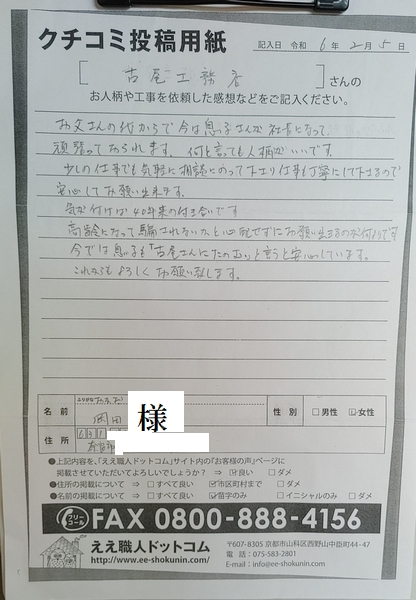 クチコミ投稿用紙
記入日 令和 6年 2月 5日
[ 古尾工務店 ] さんの
お人柄や工事を依頼した感想などをご記入ください。
お父さんの代からで今は息子さんが社長になって
頑張っておられます。何と言っても人柄がいいです。
少しの仕事でも気軽に相談にのって下さり仕事も丁寧にして下さるので
安心してお願い出来ます。
気が付けば40年来の付き合いです
高齢になって騙されないかと心配せずにお願い出来るのが何よりです
今では息子も「古尾さんにたのむ」と言うと安心しています。
これからもよろしくお願い致します。
名前
岡田 様
性別 □男性 ☑女性
住所
631
奈良
●上記内容を、「ええ職人ドットコム」サイト内の『お客様の声』ページに
掲載させていただいてよろしいでしょうか? ⇒ ☑良い □ダメ
●住所の掲載について ⇒ □すべて良い ☑市区町村まで □ダメ
●名前の掲載について ⇒ □すべて良い ☑苗字のみ □イニシャルのみ □ダメ
フリーコール FAX 0800-888-4156
ええ職人ドットコム
http://www.ee-shokunin.com/
〒607-8305 京都市山科区西野山中臣町44-47
電話:075-583-2801
E-mail:info@ee-shokunin.com